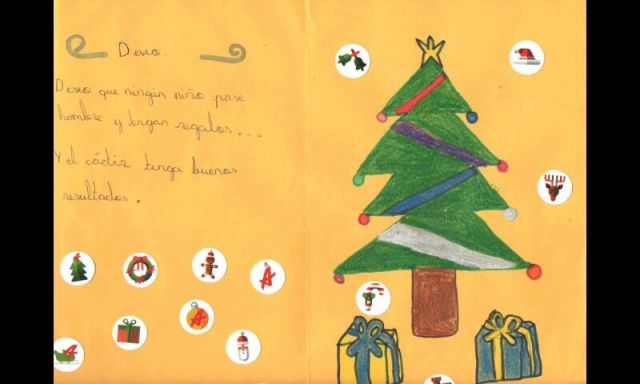 Deseo.
Deseo que ningún niño pase
hambre y tengan regalos...
Y el cádiz tenga buenos
resultados.
A
A
A